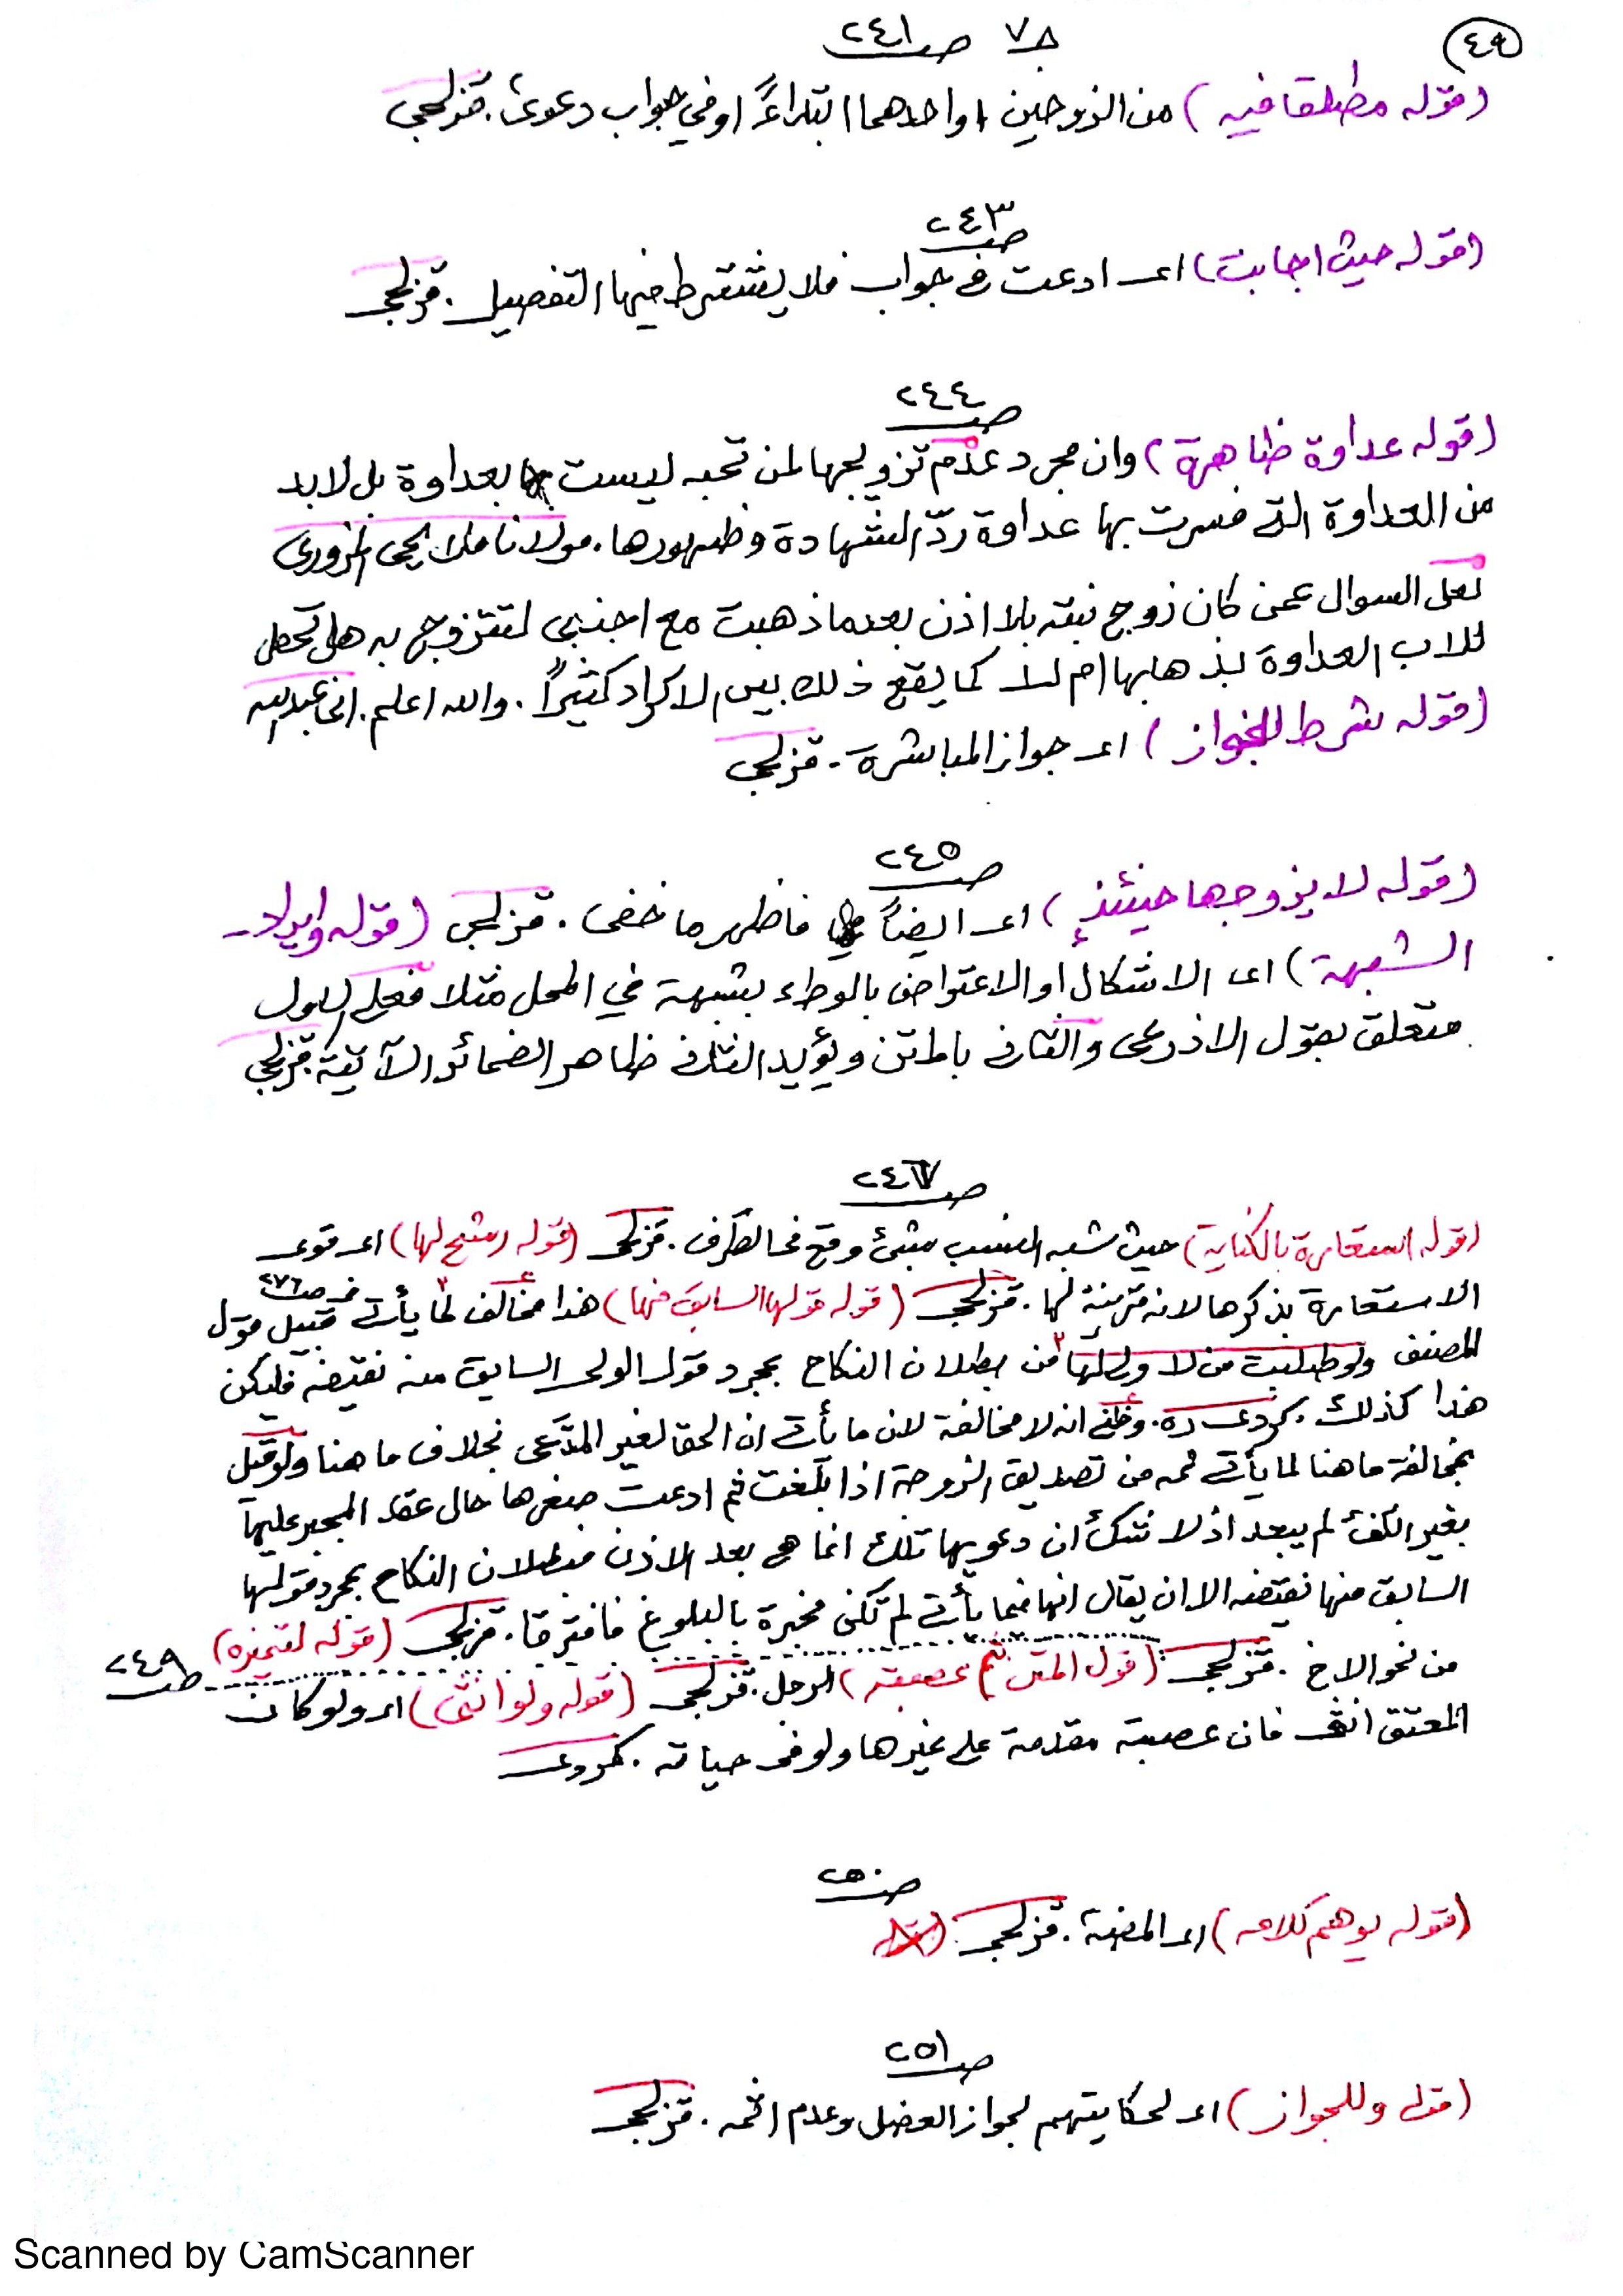 ٤٩
ج٧ ص٢٤١
(قوله مطلقا فيه) من الزوجين او احدهما ابتداءً او في جواب دعوى. قزلجي
ص٢٤٣
(قوله حيث اجابت) اى ادعت في جواب فلا يشترط فيها التفصيل. قزلجي
ص٢٤٤
(قوله عداوة ظاهرة) وان مجرد عدم تزويجها لمن تحبه ليست بعداوة بل لابد
من العداوة التى فسرت بها عداوة ردّ الشهادة وظهورها. مولانا ملا يحيى المزورى
لعل السوال عمن كان زوج بنته بلا اذن بعدما ذهبت مع اجنبي لتتزوج به هل تحصل
للاب العداوة بذهابها ام لا كما يقع ذلك بين الاكراد كثيراً. والله اعلم. عبدالله
(قوله شرط للجواز) اى جواز المباشرة. قزلجي
ص٢٤٥
(قوله لا يزوجها حينئذٍ) اى ايضاً فاظهر ما خفى. قزلجي (قوله وايراد
الشبهة) اى الاشكال او الاعتراض بالوطء بشبهة في المحل مثلا فعلى الاول
متعلق بقول الاذرعى والثانى بالمتن ويؤيد الثانى ظاهر الضمائر الآتية. قزلجي
ص٢٤٧
(قوله استعارة بالكناية) حيث شبه النسب بشئ وقع في الطرف. قزلجي (قوله رشح لها) اى قوى
الاستعارة بذكرها لانه قرينة لها. قزلجي (قوله قولها السابق منها) هذا مخالف لما يأتى في ص٢٧٦ قبيل قول
المصنف ولو طلبت من لا ولى لها من بطلان النكاح بمجرد قول الولى السابق منه نقيضه فليكن
هذا كذلك. كردى ره. وظنى انه لا مخالفة لان ما يأتى ان الحق لغير المدّعى بخلاف ما هنا ولو قيل
بمخالفة ما هنا لما يأتى ثمه من تصديق الزوجة اذا بلغت ثم ادعت صغرها حال عقد المجبر عليها
بغير الكفئ لم يبعد اذ لا شك ان دعويها تلك انما هى بعد الاذن فبطلان النكاح بمجرد قولها
السابق منها نقيضه الا ان يقال انها فيما يأتى لم تكن مخبرة بالبلوغ فافترقا. قزلجي (قوله لتميزه) ص٢٤٩
من نحو الاخ. قزلجي (قول المتن ثم عصبته) الرجل. قزلجي (قوله ولو انثى) اى ولو كان
المعتق انثى فان عصبته مقدمة على غيرها ولو في حياته. كردى
ص٢٥٠
(قوله يوهم كلامه) اى المصنف. قزلجي
ص٢٥١
(قوله وللجواز) اى لحكايتهم لجواز العضل وعدم اثمه. قزلجي
Scanned by CamScanner